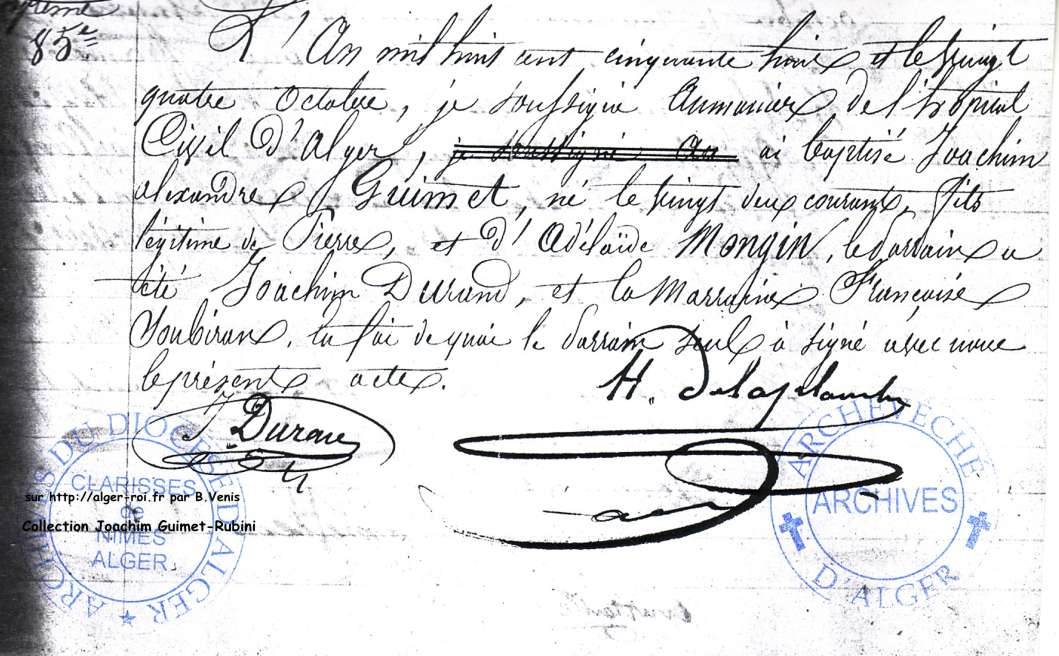 85e
L'An mil huit cent cinquante trois et le vingt
quatre octobre, je soussigné Aumonier de l'hopital
Civil d'Alger, je soussigné Au ai baptisé Joachim
alexandre Guimet, né le vingt deux courant, fils
légitime de Pierre, et d'Adélaïde Mongin, le Parrain a
été Joachim Durand, et la Marraine Françoise
Soubiran. En foi de quoi le parrain seul a signé avec nous
le présent acte.
J. Durand
H.
ARCHIVES DU DIOCESE D'ALGER
CLARISSES
de
NIMES
ALGER
sur http://alger-roi.fr par B.Venis
Collection Joachim Guimet-Rubini
ARCHEVECHÉ
ARCHIVES
D'ALGER